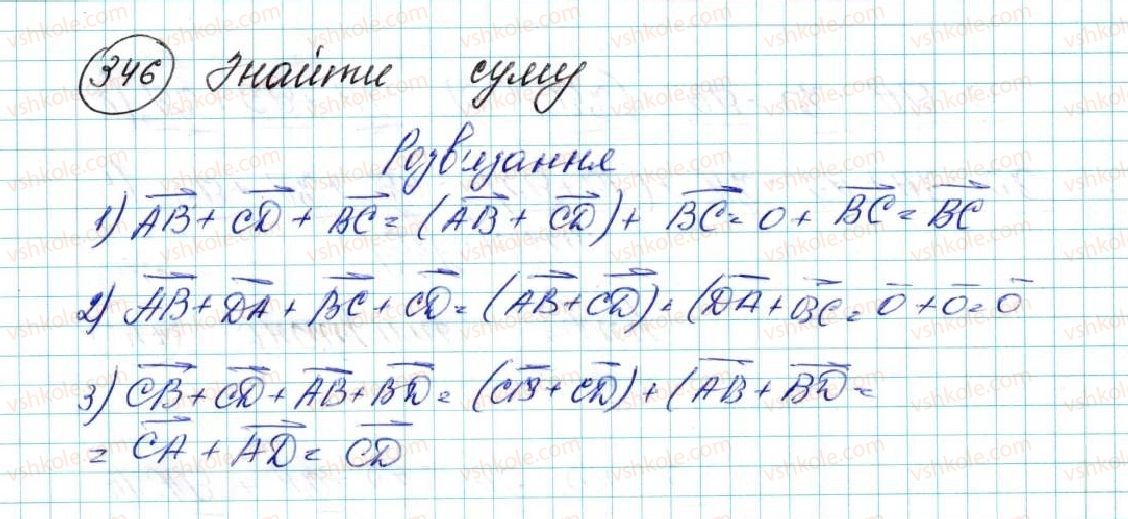 346 Знайти суму
Розв'язання
1) AB + CD + BC = (AB + CD) + BC = 0 + BC = BC
2) AB + DA + BC + CD = (AB + CD) + (DA + BC = 0 + 0 = 0
3) CB + CD + AB + BD = (CB + CD) + (AB + BD =
= CA + AD = CD
vshkole.com